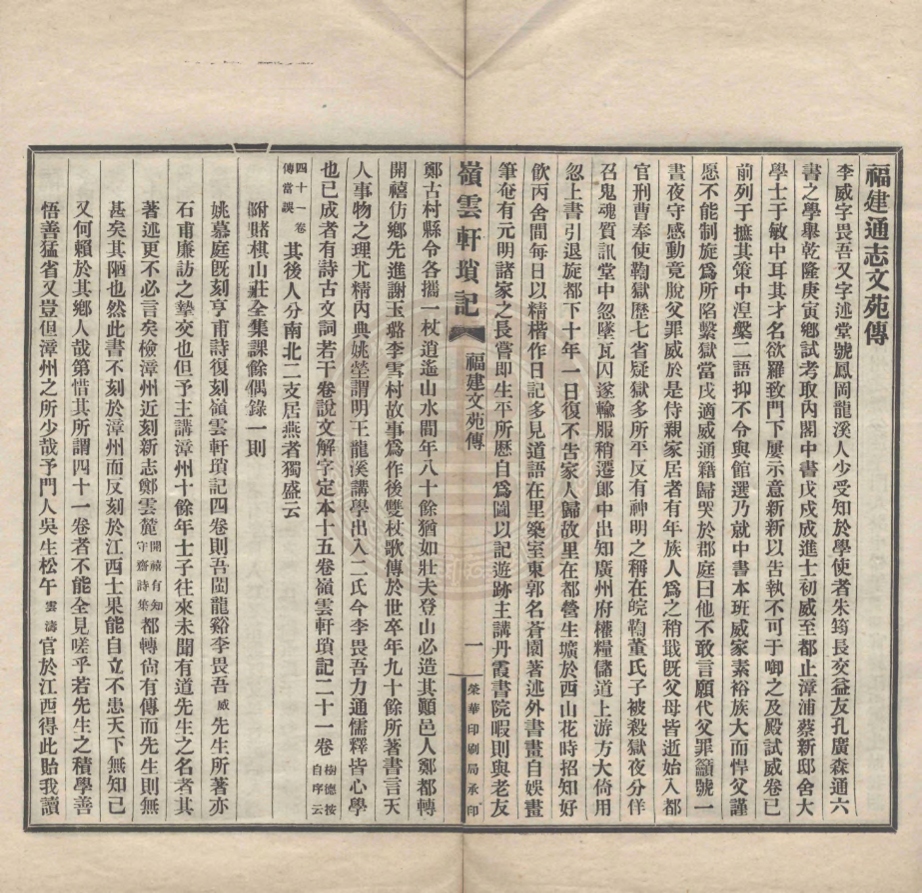 福建通志文苑傳
李威字畏吾又字述堂號鳳岡龍溪人少受知於學使者朱筠長交益友孔廣森通六
書之學舉乾隆庚寅鄉試考取內閣中書戊戌成進士初威至都止漳浦蔡新邸舍大
學士于敏中耳其才名欲羅致門下屢示意新新以告執不可于啣之及殿試威卷已
前列于摭其策中湼槃二語抑不令與館選乃就中書本班威家素裕族大而悍父謹
愿不能制旋爲所陷繫獄當戍適威通籍歸哭於郡庭曰他不敢言願代父罪籲號一
晝夜守感動竟脫父罪威於是侍親家居者有年族人爲之稍戢旣父母皆逝始入都
官刑曹奉使鞫獄歷七省疑獄多所平反有神明之稱在皖鞫董氏子被殺獄夜分佯
召鬼魂質訊堂中忽墜瓦囚遂輸服稍遷郎中出知廣州府權糧儲道上游方大倚用
忽上書引退旋都下十年一日復不告家人歸故里在都營生壙於西山花時招知好
飲丙舍間每日以精楷作日記多見道語在里築室東郭名蒼園著述外書畫自娛畫
筆奄有元明諸家之長嘗卽生平所歷自爲圖以記遊跡主講丹霞書院暇則與老友
嶺雲軒瑣記
福建文苑傳
一
榮華印刷局承印
鄭古村縣令各攜一杖逍遙山水間年八十餘猶如壯夫登山必造其顛邑人鄭都轉
開禧仿鄉先進謝玉璐李雪村故事爲作後雙杖歌傳於世卒年九十餘所著書言天
人事物之理尤精內典姚瑩謂明王龍溪講學出入二氏今李畏吾力通儒釋皆心學
也已成者有詩古文詞若干卷說文解字定本十五卷嶺雲軒瑣記二十一卷樹德按自序云
四十一卷傳當誤其後人分南北二支居燕者獨盛云
附賭棋山莊全集課餘偶錄一則
姚慕庭旣刻亨甫詩復刻嶺雲軒瑣記四卷則吾閩龍谿李畏吾威先生所著亦
石甫廉訪之摯交也但予主講漳州十餘年士子往來未聞有道先生之名者其
著述更不必言矣檢漳州近刻新志鄭雲麓開禧有知守齋詩集都轉尙有傳而先生則無
甚矣其陋也然此書不刻於漳州而反刻於江西士果能自立不患天下無知已
又何賴於其鄉人哉第惜其所謂四十一卷者不能全見嗟乎若先生之積學善
悟善猛省又豈但漳州之所少哉予門人吳生松午雲濤官於江西得此貽我讀